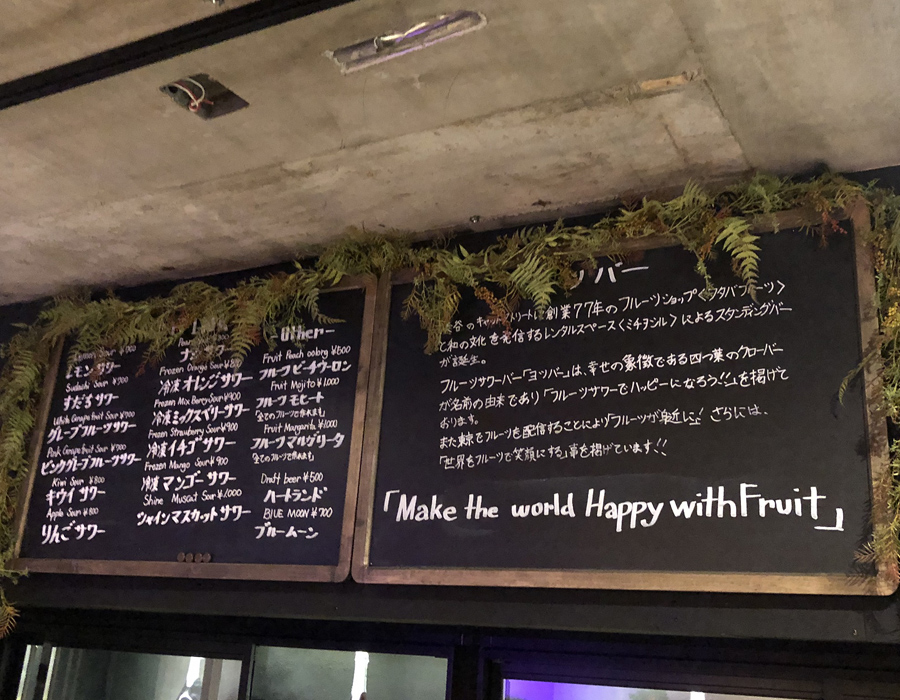 Lemon Sour ¥700
レモンサワー
Sudachi Sour ¥700
すだちサワー
White Grapefruit Sour ¥700
グレープフルーツサワー
Pink Grapefruit Sour ¥700
ピンクグレープフルーツサワー
Kiwi Sour ¥800
キウイサワー
Apple Sour ¥800
りんごサワー
サワー
Frozen Orange Sour
冷凍オレンジサワー
Frozen Mix Berry Sour ¥900
冷凍ミックスベリーサワー
Frozen Strawberry Sour ¥900
冷凍イチゴサワー
Frozen Mango Sour ¥900
冷凍マンゴーサワー
Shine Muscat Sour ¥1,000
シャインマスカットサワー
-Other-
Fruit Peach oolong ¥500
フルーツピーチウーロン
Fruit Mojito ¥1,000
フルーツモヒート
全てのフルーツで作れます
Fruit Margarita ¥1,000
フルーツマルガリータ
全てのフルーツで作れます
Draft beer ¥500
ハートランド
BLUE MOON ¥700
ブルームーン
ッバー
谷のキャットストリートに創業77年のフルーツショップ〈フタバフルーツ〉
と和の文化を発信するレンタルスペース〈ミチヲシル〉によるスタンディングバー
が誕生。
フルーツサワーバー「ヨツバー」は、幸せの象徴である四つ葉のクローバー
が名前の由来であり「フルーツサワーでハッピーになろう!!」を掲げて
おります。
また東京でフルーツを配信することにより「フルーツが身近に!さらには、
「世界をフルーツで笑顔にする」事を掲げています!!
「Make the world Happy with Fruit」